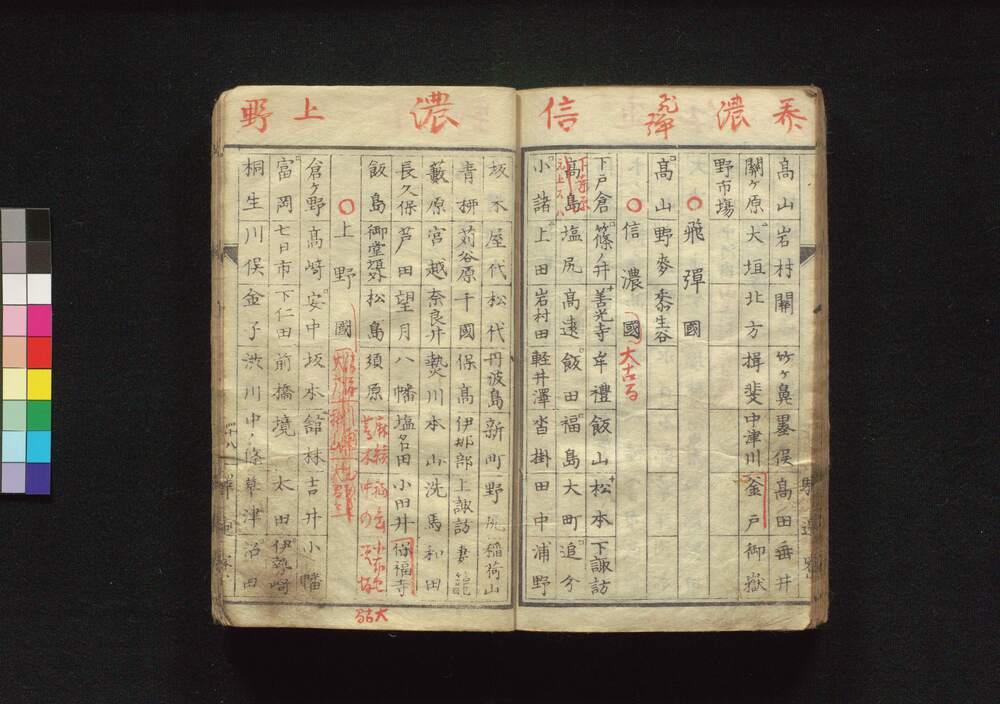 濃
飛彈
信
濃
上
野
高山 岩村 關 竹ヶ鼻 墨俣 高田 垂井
關ヶ原 大垣 北方 揖斐 中津川 釜戸 御嶽
野市場
○飛彈國
高山 野麥
○信濃國
大古
下戸倉 篠ノ井 善光寺 牟禮 飯山 松本 下諏訪
高島 塩尻 高遠 飯田 福島 大町 追分
小諸 上田 岩村田 軽井澤 沓掛 田中 浦野
坂木 屋代 松代 丹波島 新町 野尻 稲荷山
青栁 苅谷原 千國 保高 伊那部 上諏訪 妻籠
藪原 宮越 奈良井 熱川 本山 洗馬 和田
長久保 芦田 望月 八幡 塩名田 小田井 保福寺
飯島 御堂垣外 松島 須原
○上野國
倉ヶ野 高崎 安中 坂本 舘林 吉井 小幡
富岡 七日市 下仁田 前橋 境 太田 伊勢崎
桐生 川俣 金子 渋川 中ノ條 草津 沼田